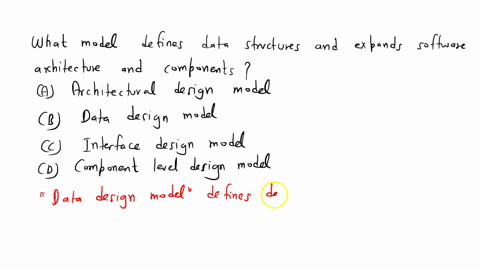 What model defines data structures and expands software
architecture and components ?
(A) Architectural design model
(B) Data design model
(C) Interface design model
(D) Component level design model
"Data design model" defines de